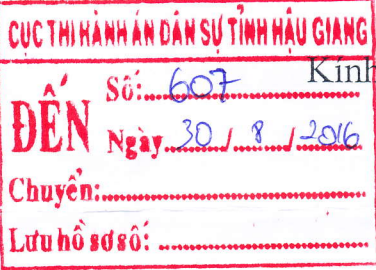 CỤC THI HÀNH ÁN DÂN SỰ TỈNH HẬU GIANG
Kính
ĐẾN
Số: 607
Ngày 30 / 8 / 2016
Chuyển:
Lưu hồ sơ số: